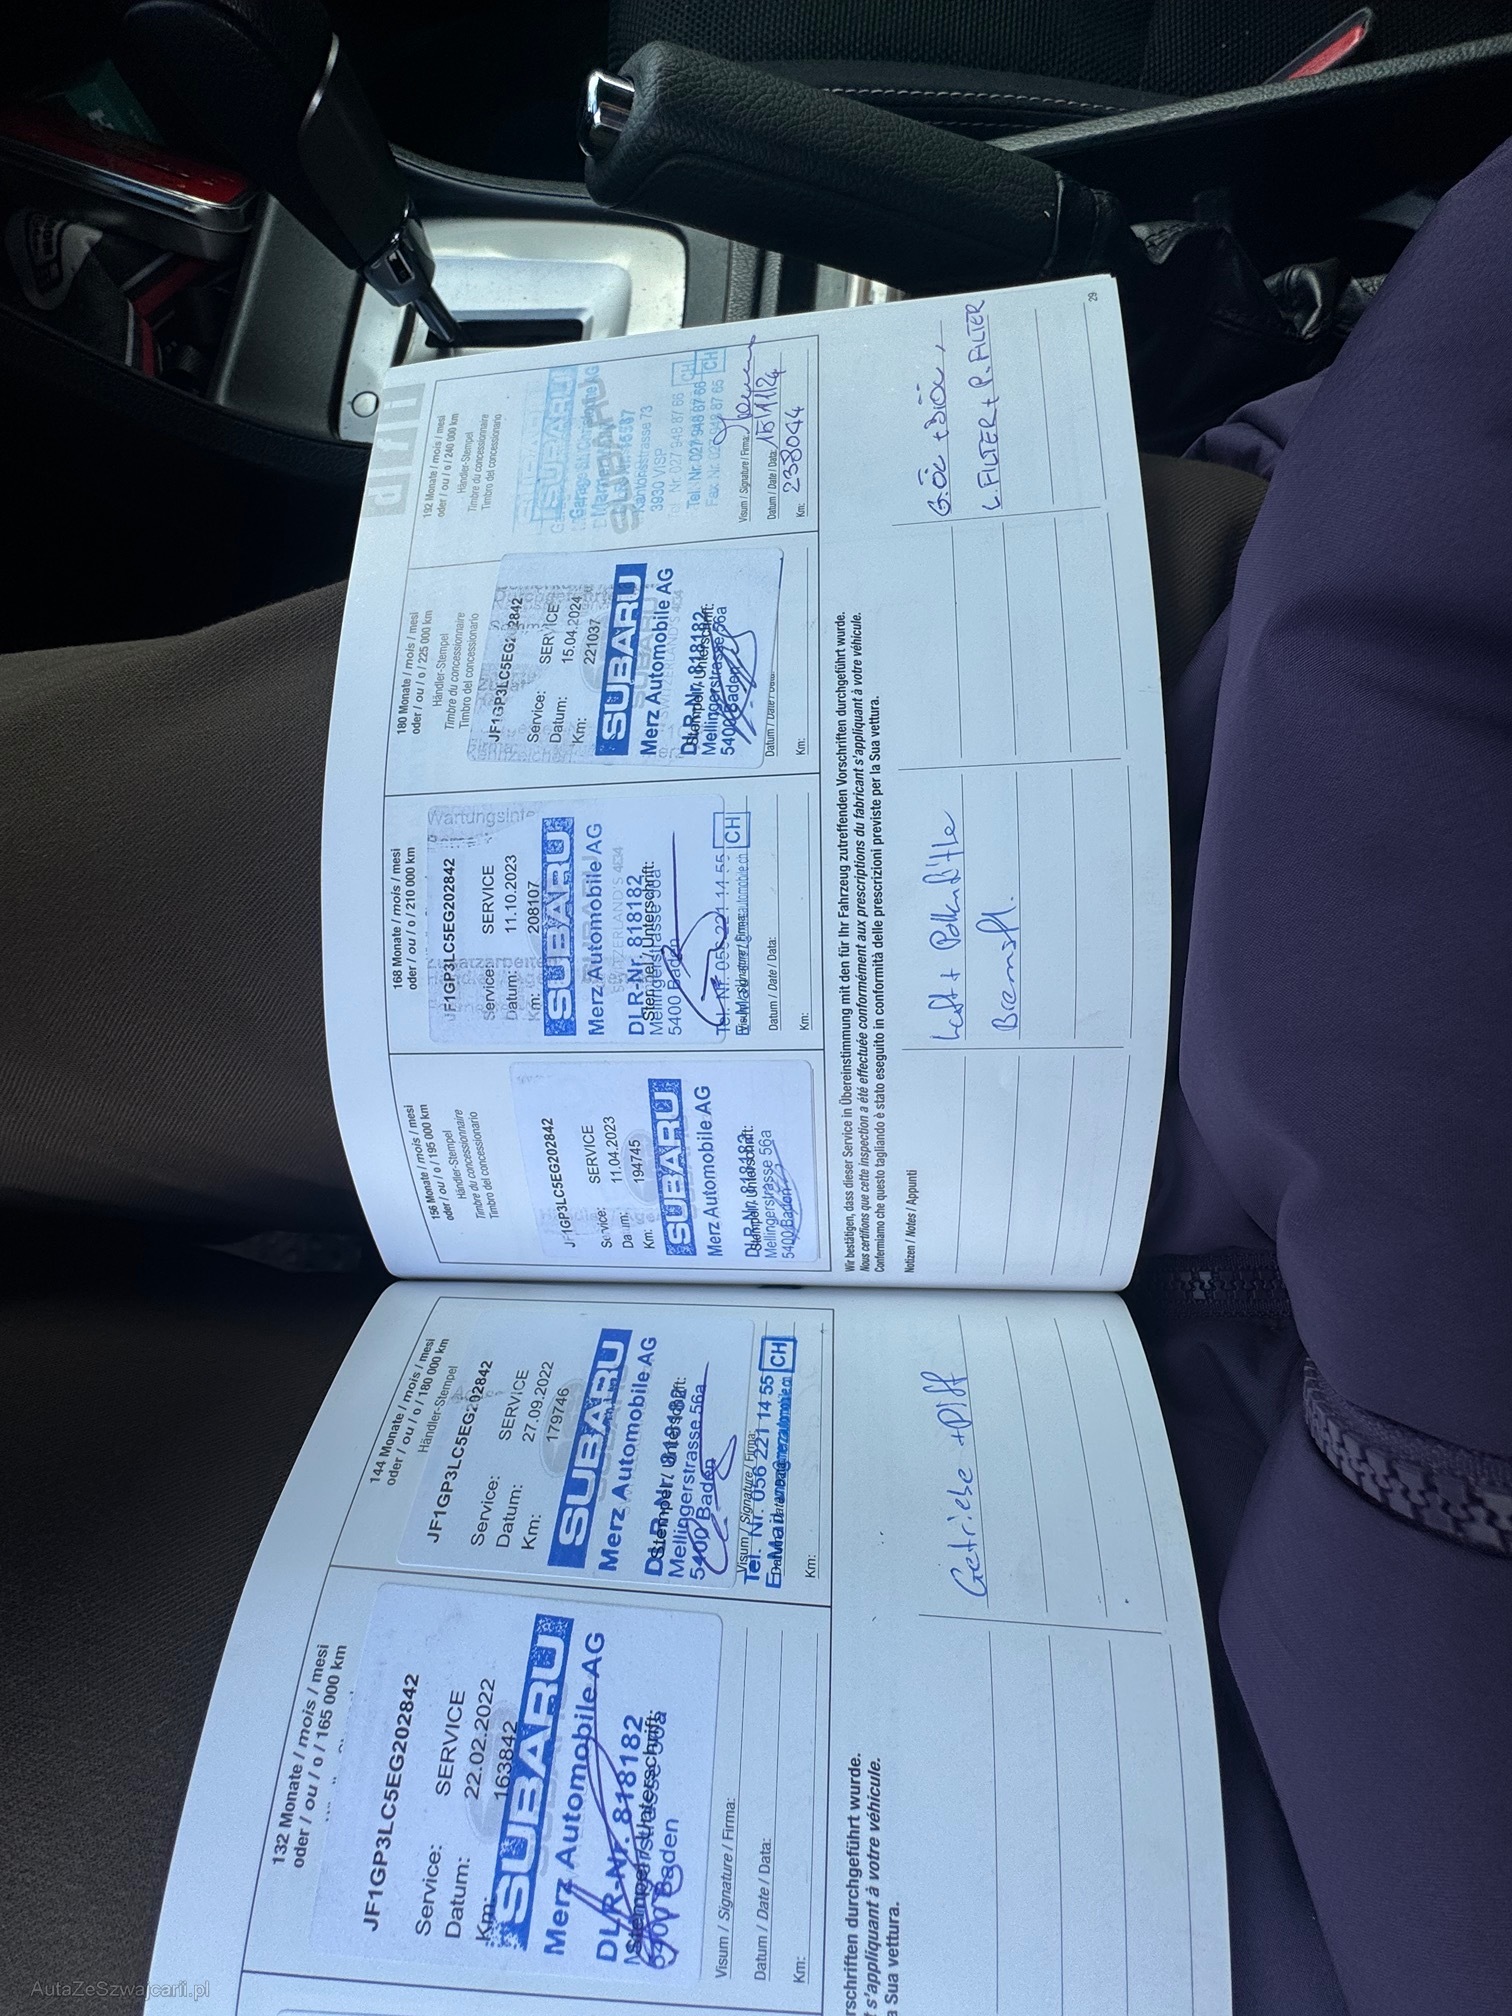 132 Monate / mois / mesi
oder / ou / o / 165 000 km
JF1GP3LC5EG202842
Service: SERVICE
Datum: 22.02.2022
Km: 163842
SUBARU
Merz Automobile AG
DLR-Nr. 818182
Stempel, Unterschrift:
5400 Baden
Visum / Signature / Firma:
Datum / Date / Data:
Km:
144 Monate / mois / mesi
oder / ou / o / 180 000 km
Händler-Stempel
JF1GP3LC5EG202842
Service: SERVICE
Datum: 27.09.2022
Km: 179746
SUBARU
Merz Automobile AG
DLR-Nr. 818182
Stempel, Unterschrift:
Mellingerstrasse 56a
5400 Baden
Visum / Signature / Firma:
Tel. Nr. 056 221 14 55 CH
Km:
rschriften durchgeführt wurde.
t s'appliquant à votre véhicule.
a Sua vettura.
Getriebe + Diff
156 Monate / mois / mesi
oder / ou / o / 195 000 km
Händler-Stempel
Timbre du concessionnaire
Timbro del concessionario
JF1GP3LC5EG202842
Service: SERVICE
Datum: 11.04.2023
Km: 194745
SUBARU
Merz Automobile AG
DLR-Nr. 818182
Stempel, Unterschrift:
Mellingerstrasse 56a
5400 Baden
168 Monate / mois / mesi
oder / ou / o / 210 000 km
JF1GP3LC5EG202842
Service: SERVICE
Datum: 11.10.2023
Km: 208107
SUBARU
Merz Automobile AG
DLR-Nr. 818182
Stempel, Unterschrift:
Mellingerstrasse 56a
5400 Baden
Tel. Nr. 056 221 14 55 CH
Visum / Signature / Firma:
Datum / Date / Data:
Km:
180 Monate / mois / mesi
oder / ou / o / 225 000 km
Händler-Stempel
Timbre du concessionnaire
Timbro del concessionario
JF1GP3LC5EG202842
Service: SERVICE
Datum: 15.04.2024
Km: 221037
SUBARU
Merz Automobile AG
DLR-Nr. 818182
Stempel, Unterschrift:
Mellingerstrasse 56a
5400 Baden
Datum / Date / Data:
Km:
192 Monate / mois / mesi
oder / ou / o / 240 000 km
Händler-Stempel
Timbre du concessionnaire
Timbro del concessionario
SUBARU
Kantonsstrasse 73
3930 VISP
Tel. Nr. 027 948 87 66 CH
Visum / Signature / Firma:
Datum / Date / Data: 15/11/24
Km: 238044
Wir bestätigen, dass dieser Service in Übereinstimmung mit den für Ihr Fahrzeug zutreffenden Vorschriften durchgeführt wurde.
Nous certifions que cette inspection a été effectuée conformément aux prescriptions du fabricant s'appliquant à votre véhicule.
Confermiamo che questo tagliando è stato eseguito in conformità delle prescrizioni previste per la Sua vettura.
Notizen / Notes / Appunti
Luft + Pollenfilter
Bremsfl.
G.ÖL + DIÖL,
L.FILTER + P.FILTER
29
AutaZeSzwajcarii.pl